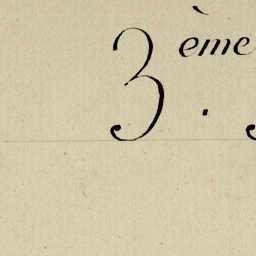 3ème.